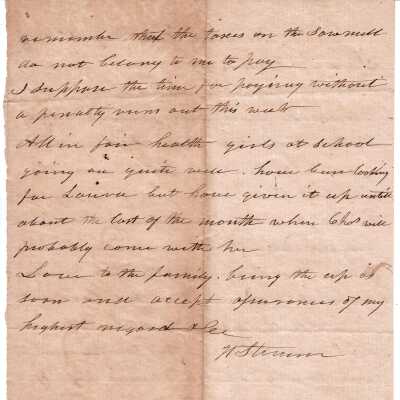 remember that the taxes on the Sawmill
do not belong to me to pay
I suppose the time for paying without
a penalty runs out this week
All in fair health girls at school
going on quite well. have been looking
for Louisa but have given it up until
about the last of the month when Chas will
probably come with her
Love to the family. bring the up
soon and accept assurances of my
highest regard &